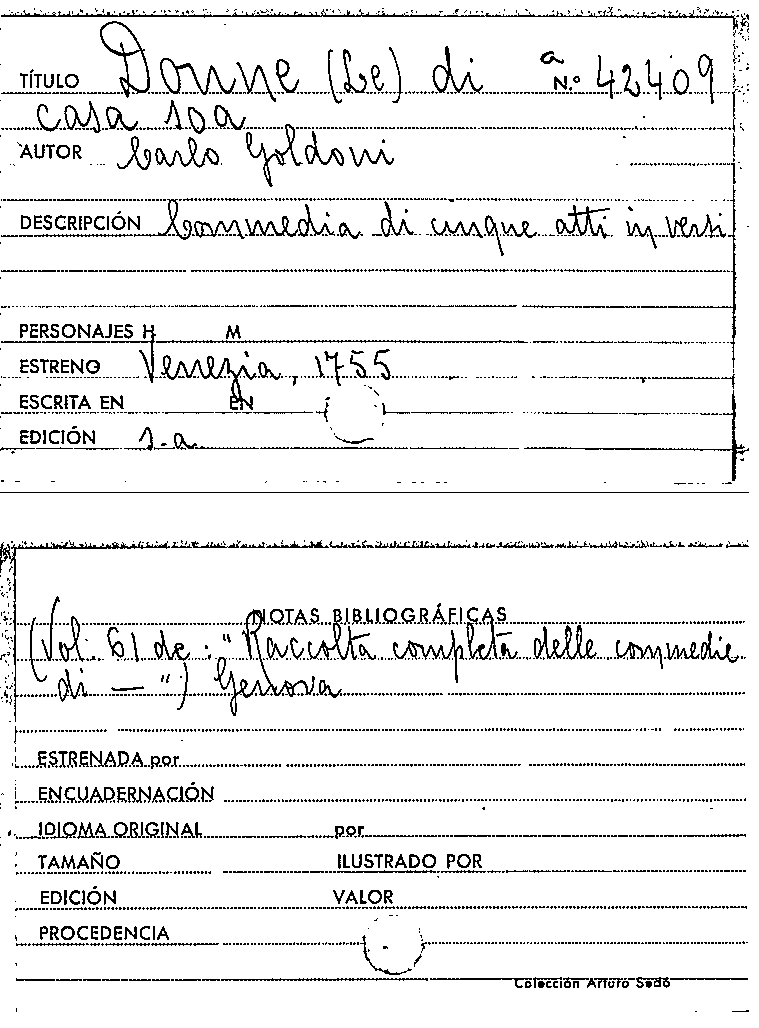 TÍTULO Donne (Le) di a N.º 42409
casa soa
AUTOR Carlo Goldoni
DESCRIPCIÓN Commedia di cinque atti in versi
PERSONAJES H M
ESTRENO Venezia, 1755
ESCRITA EN EN
EDICIÓN s.a.
NOTAS BIBLIOGRÁFICAS
(Vol. 61 de : "Raccolta completa delle commedie
di — ") Genova
ESTRENADA por
ENCUADERNACIÓN
IDIOMA ORIGINAL por
TAMAÑO ILUSTRADO POR
EDICIÓN VALOR
PROCEDENCIA
Colección Arturo Sedó